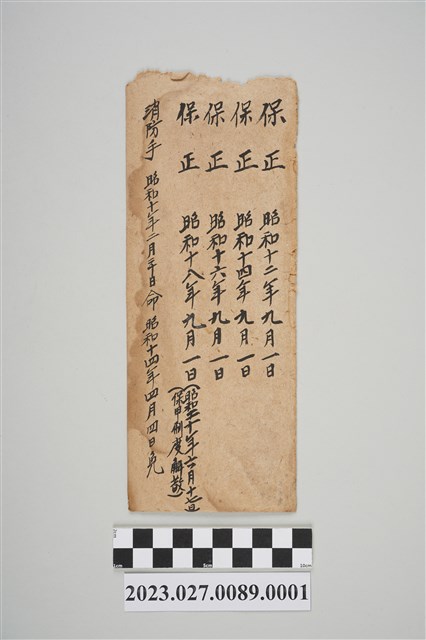 保正 昭和十二年九月一日
保正 昭和十四年九月一日
保正 昭和十六年九月一日
保正 昭和十八年九月一日
(昭和二十年六月十七日
(保甲制度解散)
消防手 昭和十年二月二十日命 昭和十四年四月四日免
1cm
5cm
10cm
2023.027.0089.0001